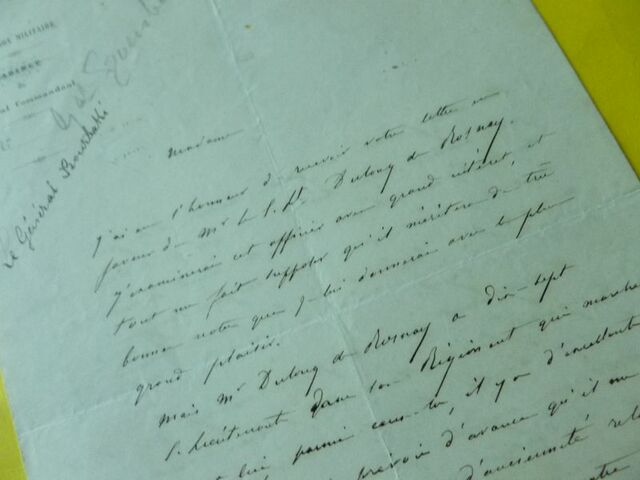 MILITAIRE
Commandant
Le Général Bourbaki
Madame
J'ai eu l'honneur de recevoir votre lettre en
faveur de Mr le S. Lt Dulong de Rosnay.
J'examinerai cet officier avec grand intérêt, et
tout me fait supposer qu'il méritera de très
bonnes notes que je lui donnerai avec le plus
grand plaisir.
Mais Mr Dulong de Rosnay a dix-sept
S. Lieutenants dans son Régiment qui marchent
lui parmi ceux-ci, il y a d'excellents
prévois d'avance qu'il me
d'ancienneté